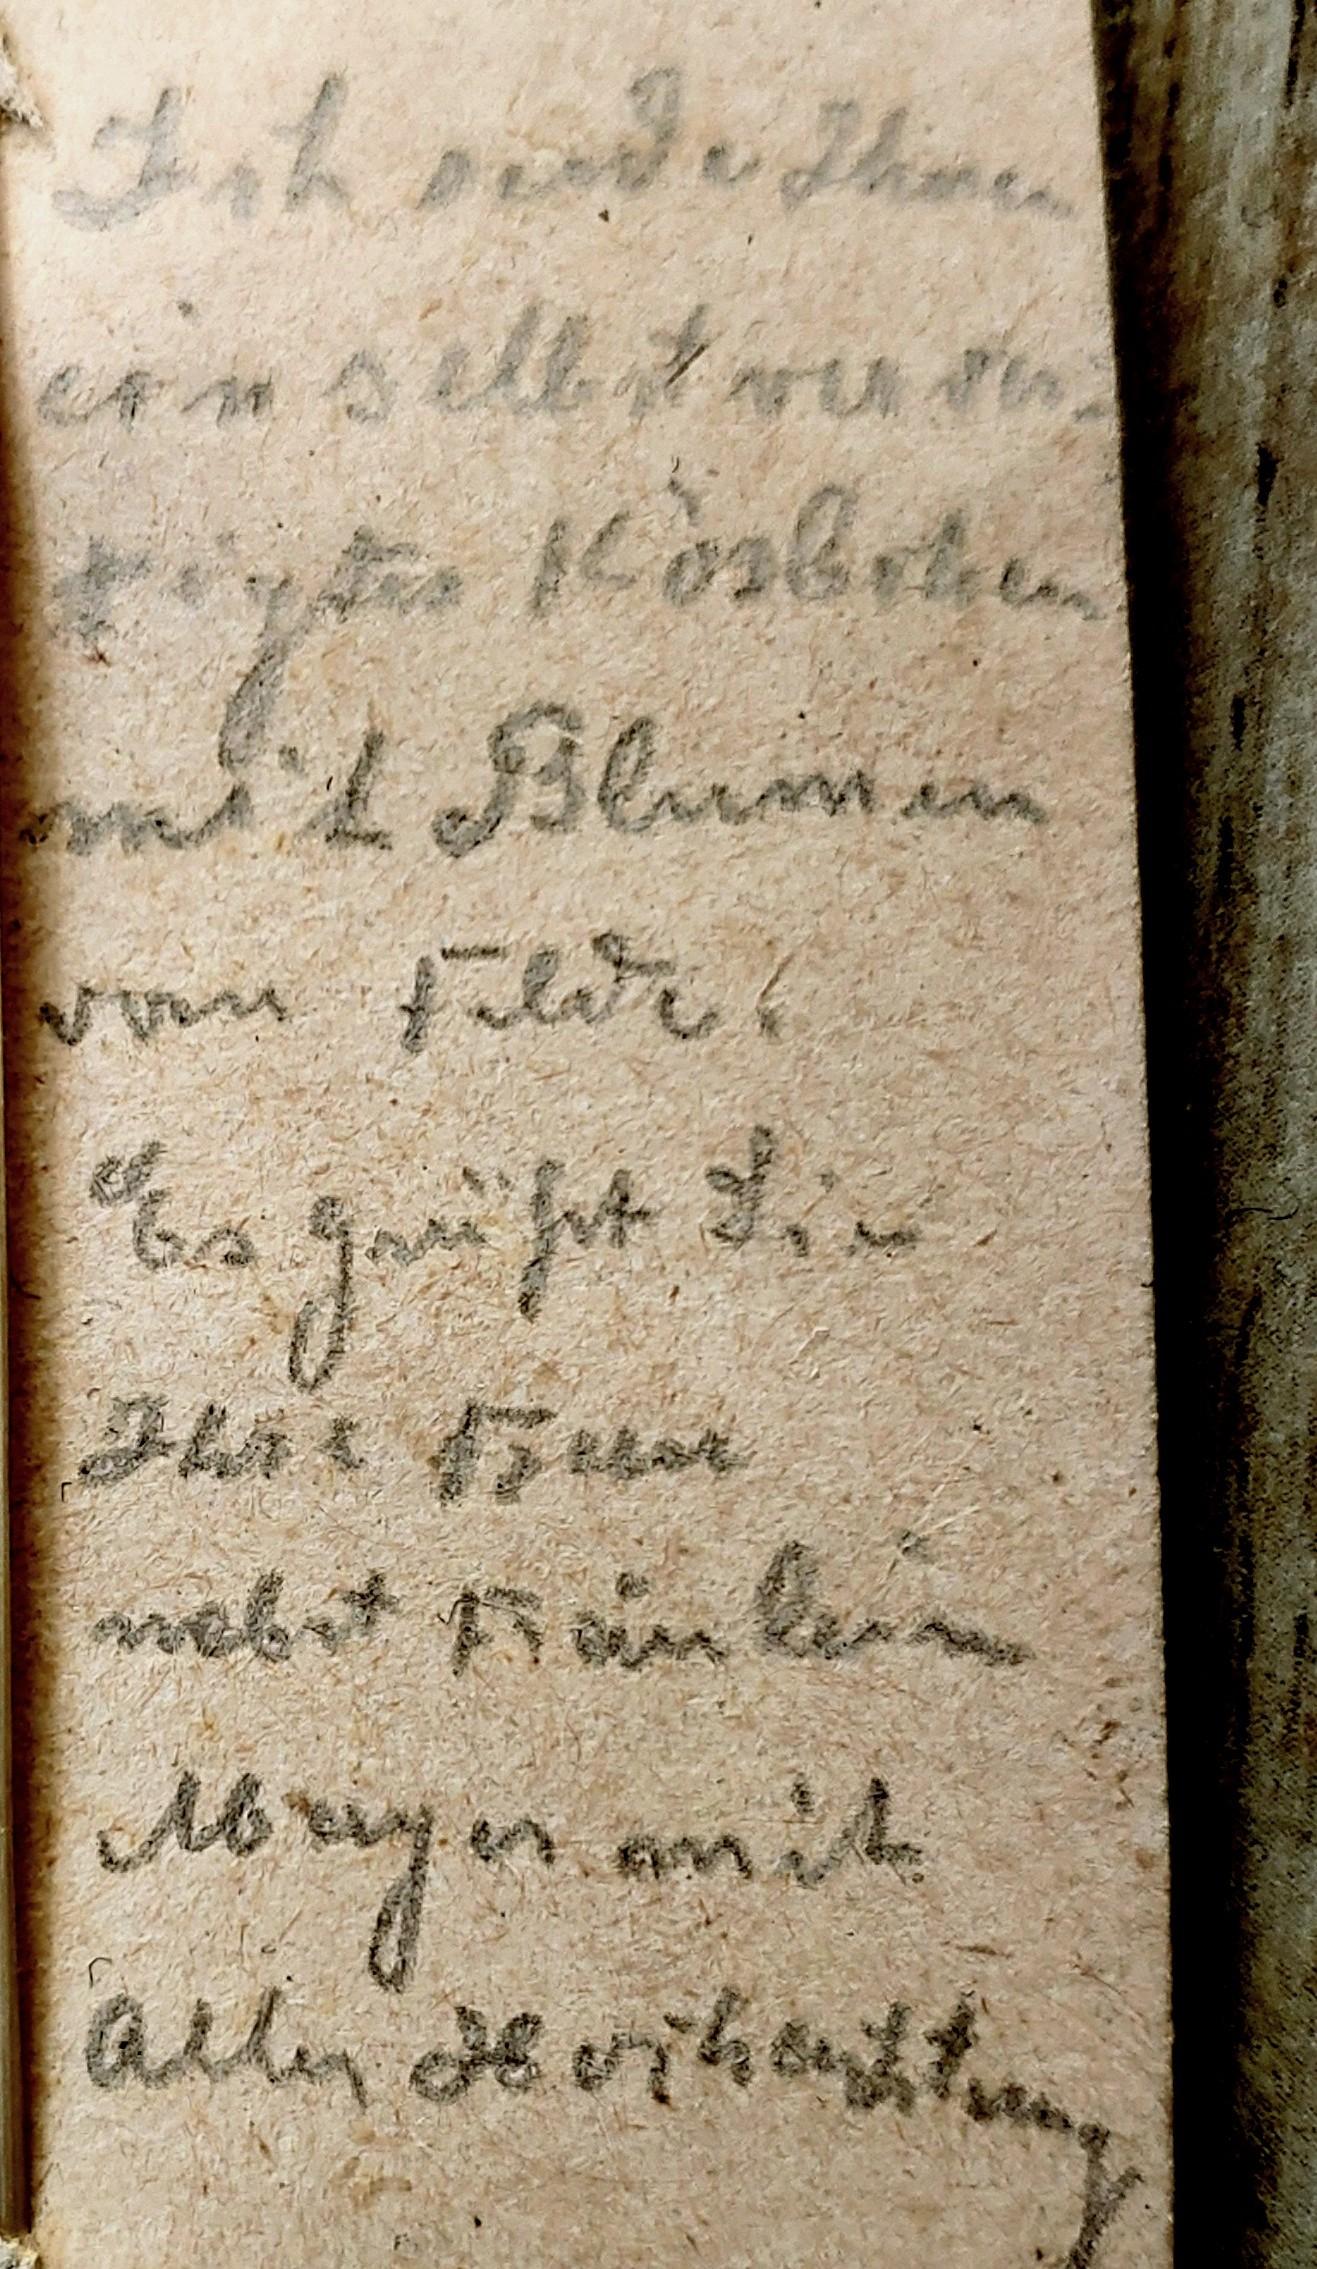 Ich sende Ihnen
ein selbst verfer-
tigtes Körbchen
mit Blumen
vom Felde.
Es grüßt Sie
Ihre Frau
nebst Fräulein
Mayer mit
Aller Hochachtung